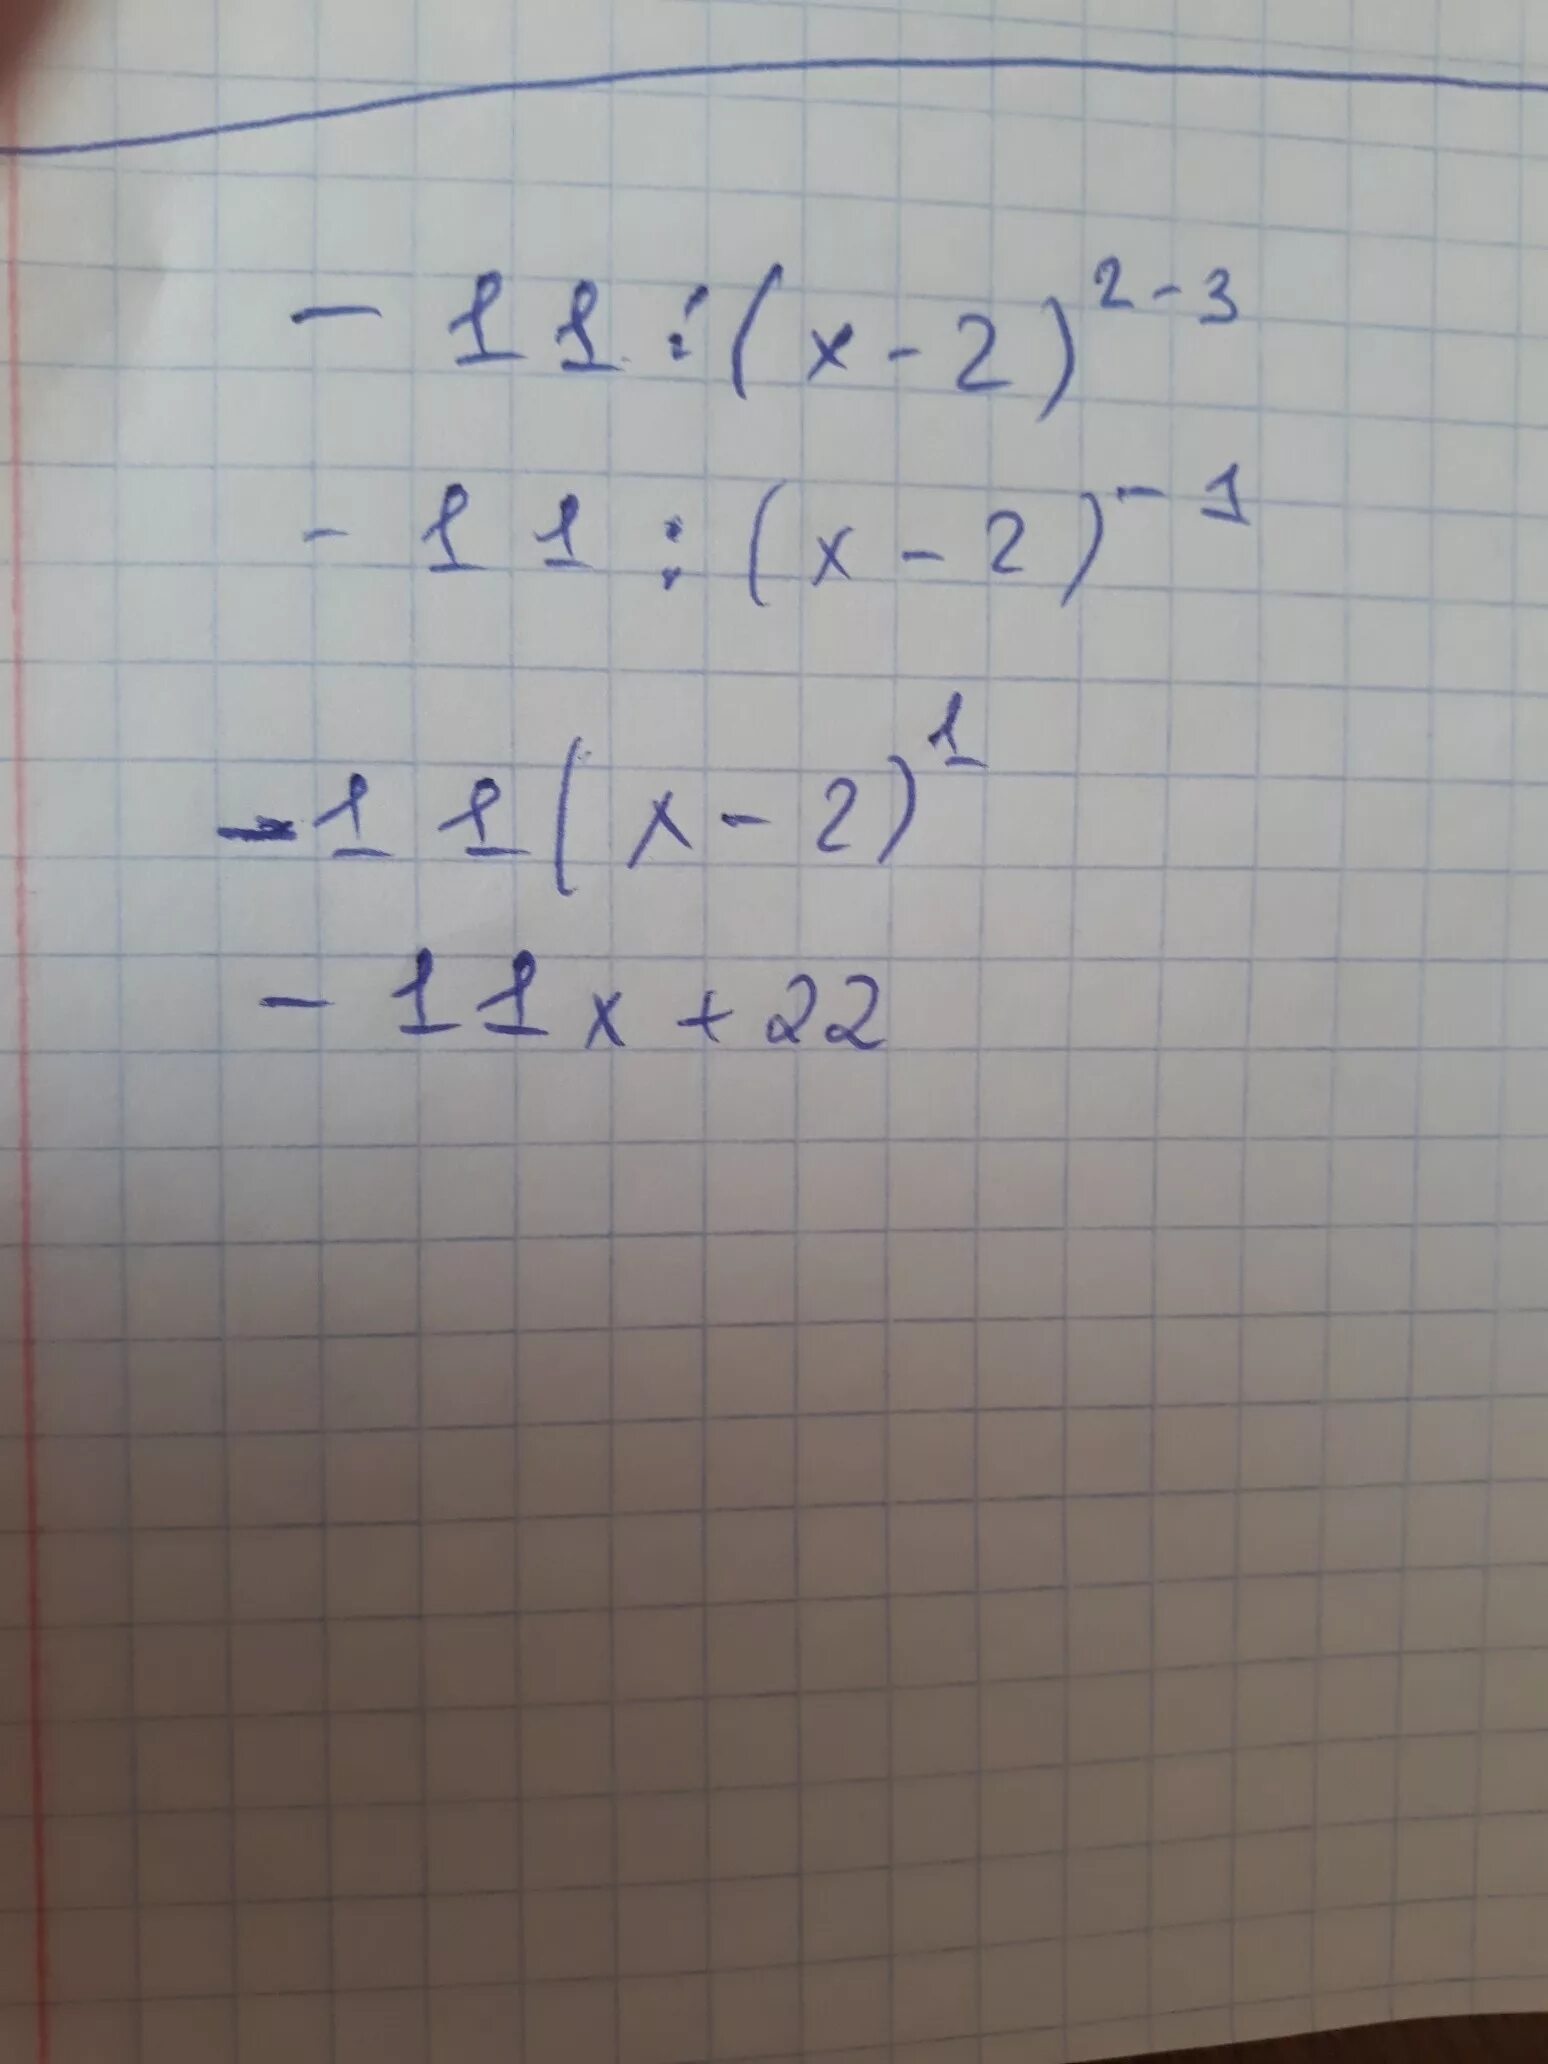 - 11 : (x - 2)^2-3
- 11 : (x - 2)^-1
- 11 (x - 2)^1
- 11x + 22